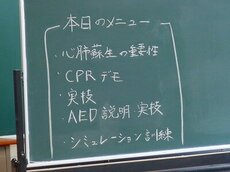 本日のメニュー
・心肺蘇生の重要性
・CPRデモ
・実技
・AED説明 実技
・シミュレーション訓練